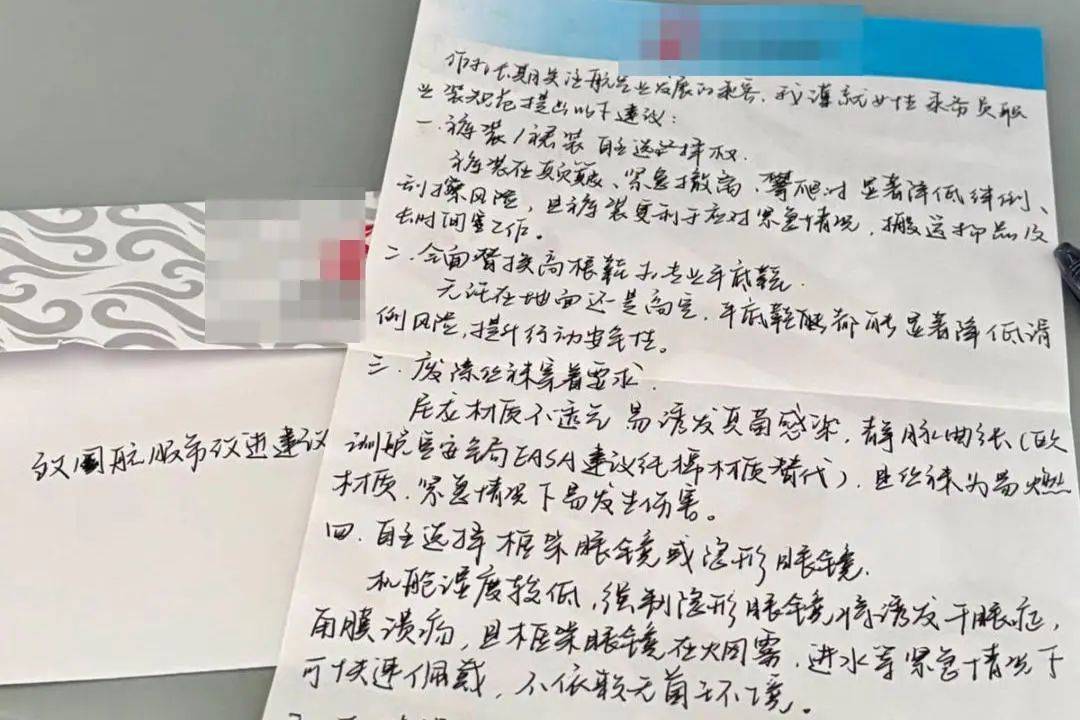 作为长期关注航空业发展的乘客，我谨就女性乘务员职
业装规范提出以下建议：
一.裤装/裙装自主选择权.
裤装在颠簸、紧急撤离、攀爬时显著降低绊倒、
刮擦风险，且裤装更利于应对紧急情况，搬运物品及
长时间工作。
二.全面替换高根鞋为专业平底鞋.
无论在地面还是高空，平底鞋都能显著降低滑
倒风险，提升行动安全性。
三.废除丝袜穿着要求.
尼龙材质不透气易诱发真菌感染，静脉曲张（欧
训航空安全局EASA建议纯棉材质替代），且丝袜为易燃
材质，紧急情况下易发生伤害。
四.自主选择框架眼镜或隐形眼镜.
机舱湿度较低，强制隐形眼镜将诱发干眼症，
角膜溃疡，且框架眼镜在烟雾，进水等紧急情况下
可快速佩戴，不依赖无菌环境。
致国航服务改进建议